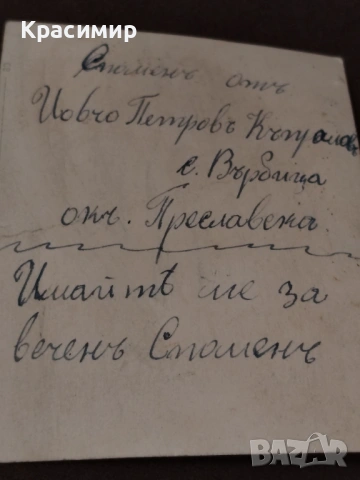 Красимир
Споменъ отъ
Иовчо Петровъ
с. Върбица
окл. Преславска
Имайтѣ ме за
веченъ Споменъ
BAZAR